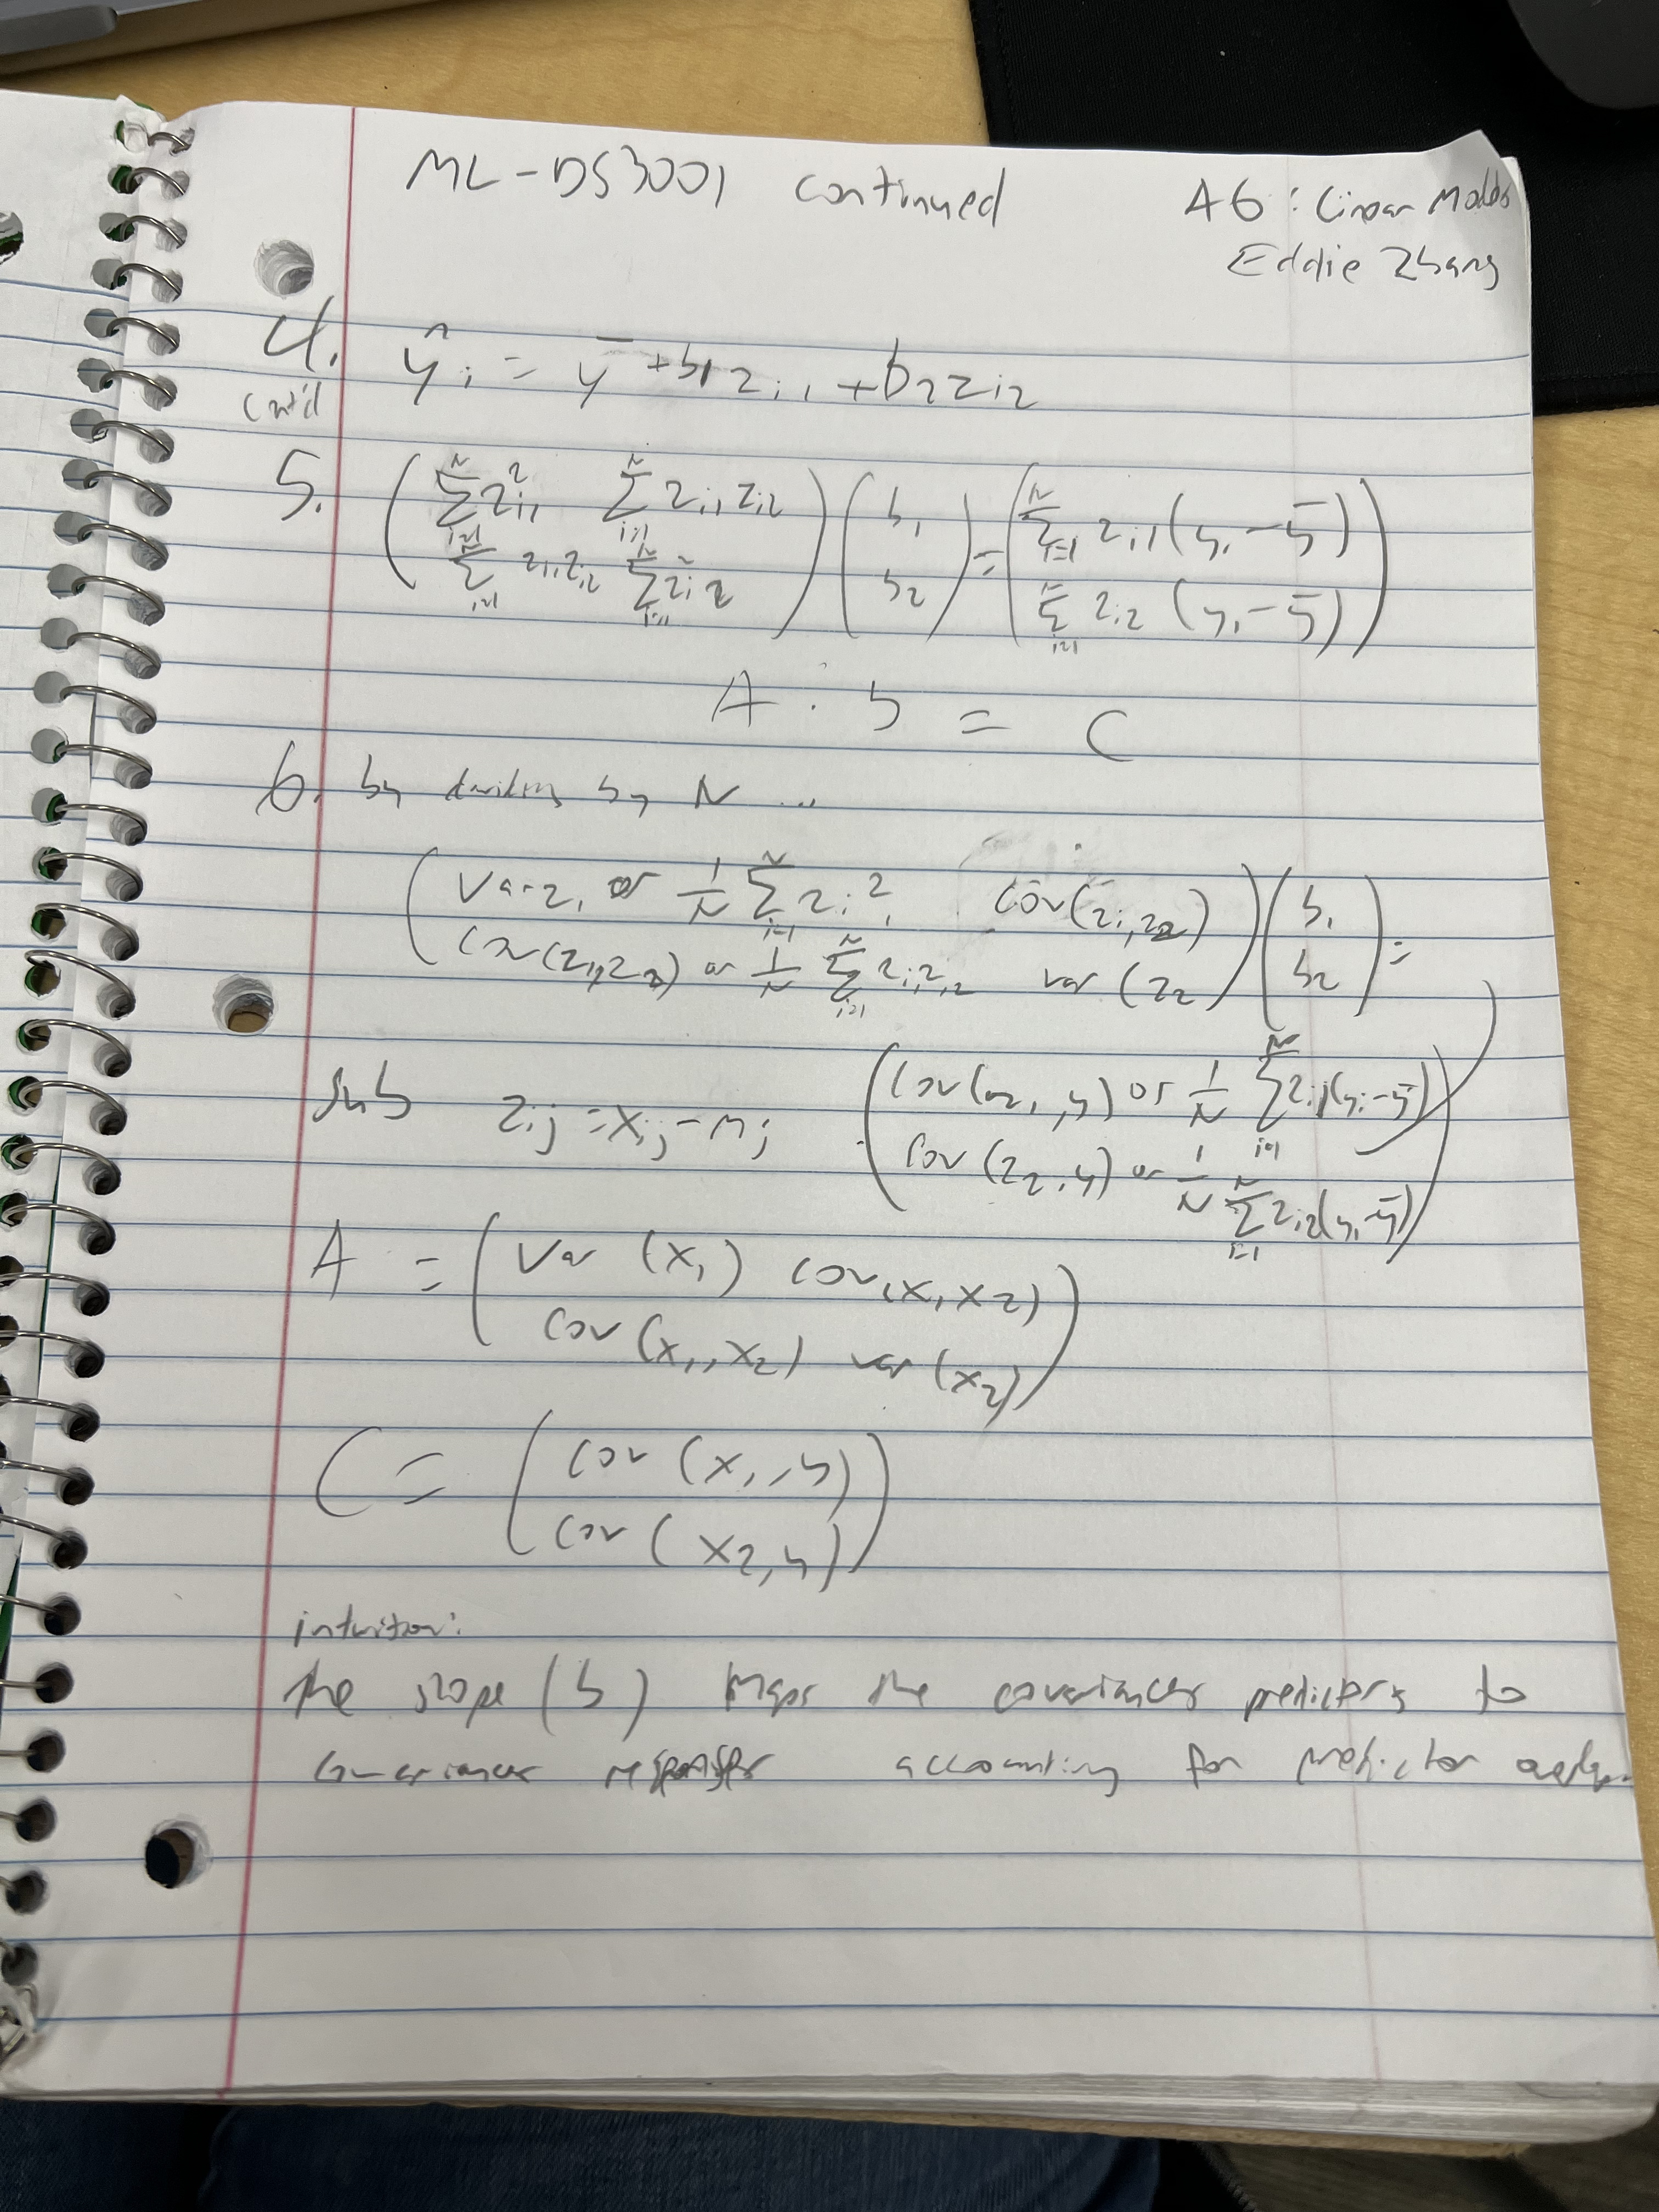 ML-DS3001 continued
A6: Linear Models
Eddie Zhang
4. ŷᵢ = ȳ + b₁zᵢ₁ + b₂zᵢ₂
cont'd
5. ( Σᵢ₌₁ᴺ zᵢ₁² Σᵢ₌₁ᴺ zᵢ₁zᵢ₂ ) ( b₁ ) = ( Σᵢ₌₁ᴺ zᵢ₁(yᵢ-ȳ) )
( Σᵢ₌₁ᴺ zᵢ₁zᵢ₂ Σᵢ₌₁ᴺ zᵢ₂² ) ( b₂ ) ( Σᵢ₌₁ᴺ zᵢ₂(yᵢ-ȳ) )
A · b = C
6. by dividing by N ...
( Var z₁ or 1/N Σᵢ₌₁ᴺ zᵢ₁² cov(z₁,z₂) ) ( b₁ ) =
( Cov(z₁,z₂) or 1/N Σᵢ₌₁ᴺ zᵢ₁zᵢ₂ var(z₂ ) ( b₂ )
( Cov(z₁,y) or 1/N Σᵢ₌₁ᴺ zᵢ₁(yᵢ-ȳ) )
sub zᵢⱼ = xᵢⱼ - mⱼ
( Cov(z₂,y) or 1/N Σᵢ₌₁ᴺ zᵢ₂(yᵢ-ȳ) )
A = ( Var (x₁) cov(x₁x₂) )
( cov (x₁,x₂) var (x₂) )
C = ( cov (x₁,y) )
( cov (x₂,y) )
intuition:
the slope (b) maps the covariances predictors to
covariances response accounting for predictor